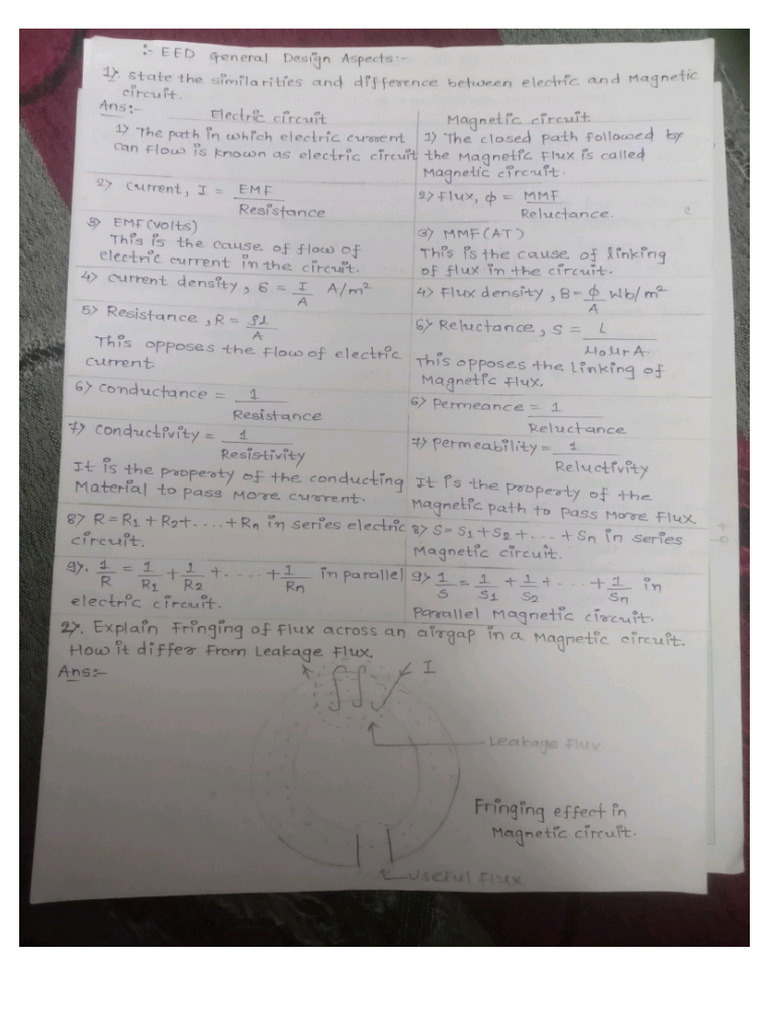 :- EED General Design Aspects:-
1). State the similarities and difference between electric and Magnetic
circuit.
Ans:-
Electric circuit
1) The path in which electric current
can flow is known as electric circuit
2) current, I = EMF / Resistance
3) EMF (volts)
This is the cause of flow of
electric current in the circuit.
4) current density, 6 = I / A A/m²
5) Resistance, R = ρl / A
This opposes the flow of electric
current.
6) conductance = 1 / Resistance
7) conductivity = 1 / Resistivity
It is the property of the conducting
Material to pass More current.
8) R = R1 + R2 + ..... + Rn in series electric
circuit.
9). 1/R = 1/R1 + 1/R2 + ..... + 1/Rn in parallel
electric circuit.
Magnetic circuit
1) The closed path followed by
the Magnetic Flux is called
Magnetic circuit.
2) Flux, ϕ = MMF / Reluctance.
3) MMF (AT)
This is the cause of linking
of flux in the circuit.
4) Flux density, B = ϕ / A Wb/m²
5) Reluctance, S = L / μ0 μr A.
This opposes the Linking of
Magnetic flux.
6) Permeance = 1 / Reluctance
7) Permeability = 1 / Reluctivity
It is the property of the
Magnetic path to pass More flux
8) S = S1 + S2 + ... + Sn in series
Magnetic circuit.
9) 1/S = 1/S1 + 1/S2 + ... + 1/Sn in
Parallel Magnetic circuit.
2). Explain fringing of flux across an airgap in a Magnetic circuit.
How it differ from Leakage flux.
Ans:-
I
Leakage flux
Fringing effect in
Magnetic circuit.
Useful flux